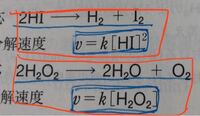 2HI ⟶ H₂ + I₂
解速度 v = k[HI]²
2H₂O₂ ⟶ 2H₂O + O₂
解速度 v = k[H₂O₂]